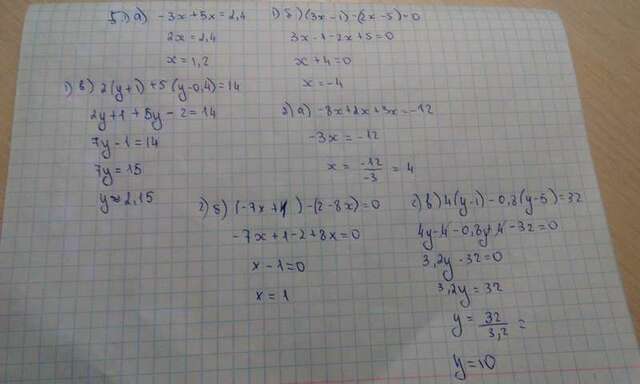 5.) а) -3x+5x=2,4
2x=2,4
x=1,2
1) б) (3x-1)-(2x-5)=0
3x-1-2x+5=0
x+4=0
x=-4
1) в) 2(y+1)+5(y-0,4)=14
2y+1+5y-2=14
7y-1=14
7y=15
y≈2,15
2) а) -8x+2x+3x=-12
-3x=-12
x = -12/-3 = 4
2) б) (-7x+1)-(2-8x)=0
-7x+1-2+8x=0
x-1=0
x=1
2) в) 4(y-1)-0,8(y-5)=32
4y-4-0,8y+4-32=0
3,2y-32=0
3,2y=32
y = 32/3,2 =
y=10